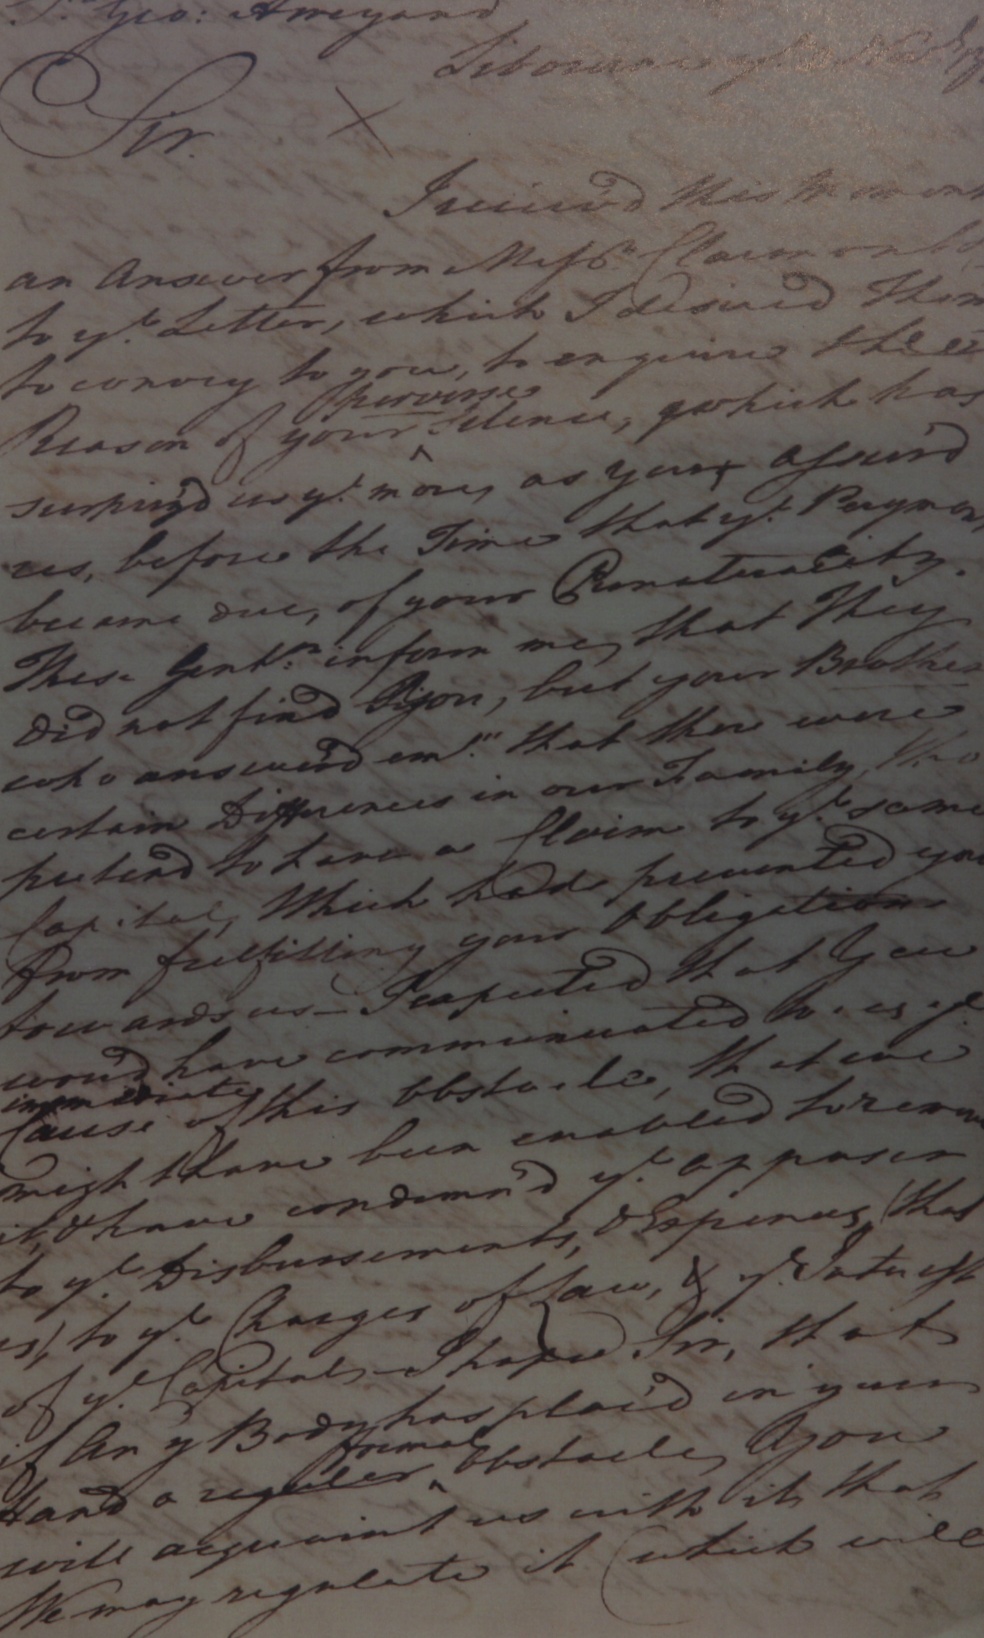 Geo: Amyand
Libourne ye
Sir.
I receiv'd this Moment
an Answer from Messrs. Clairmont
to ye. Letter, which I desired them
to convey to you, to enquire the
perverse
Reason of your Silence, which has
surpriz'd us ye. more, as you assur'd
us, before the Time that ye. Payment
became due, of your Punctuality.
These Gentn. inform me, that They
did not find you, but your Brother
who answer'd em "that there were
certain Differences in our Family, who
pretend to have a Claim to ye. same
Capital, Which had prevented you
from fulfilling your obligations
towards us — I expected that You
would have communicated to us ye.
immediate
Cause of this obstacle, that we
might have been enabled to remove
it, & have condemn'd ye. opposer
to ye. Disbursements, & Expences, (that
is) to ye. Charges of Law, & ye. Interest
of ye. Capital — I hope Sir, that
if Any Body has plac'd in your
formal
hand a regular obstacle, you
will acquaint us with it, that
We may regulate it (which will